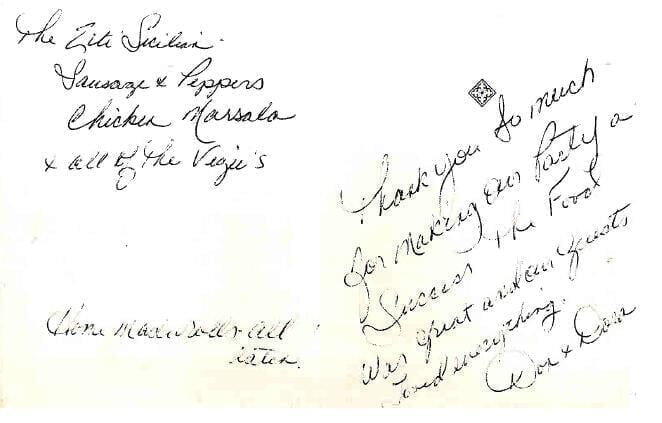 The Ziti Sicilian
Sausage & Peppers
Chicken Marsala
& all of the Vegie's
Home made rolls - all
eaten.
Thank you so much
for making our Party a
Success The Food
was great and our guests
loved everything.
Don & Dora